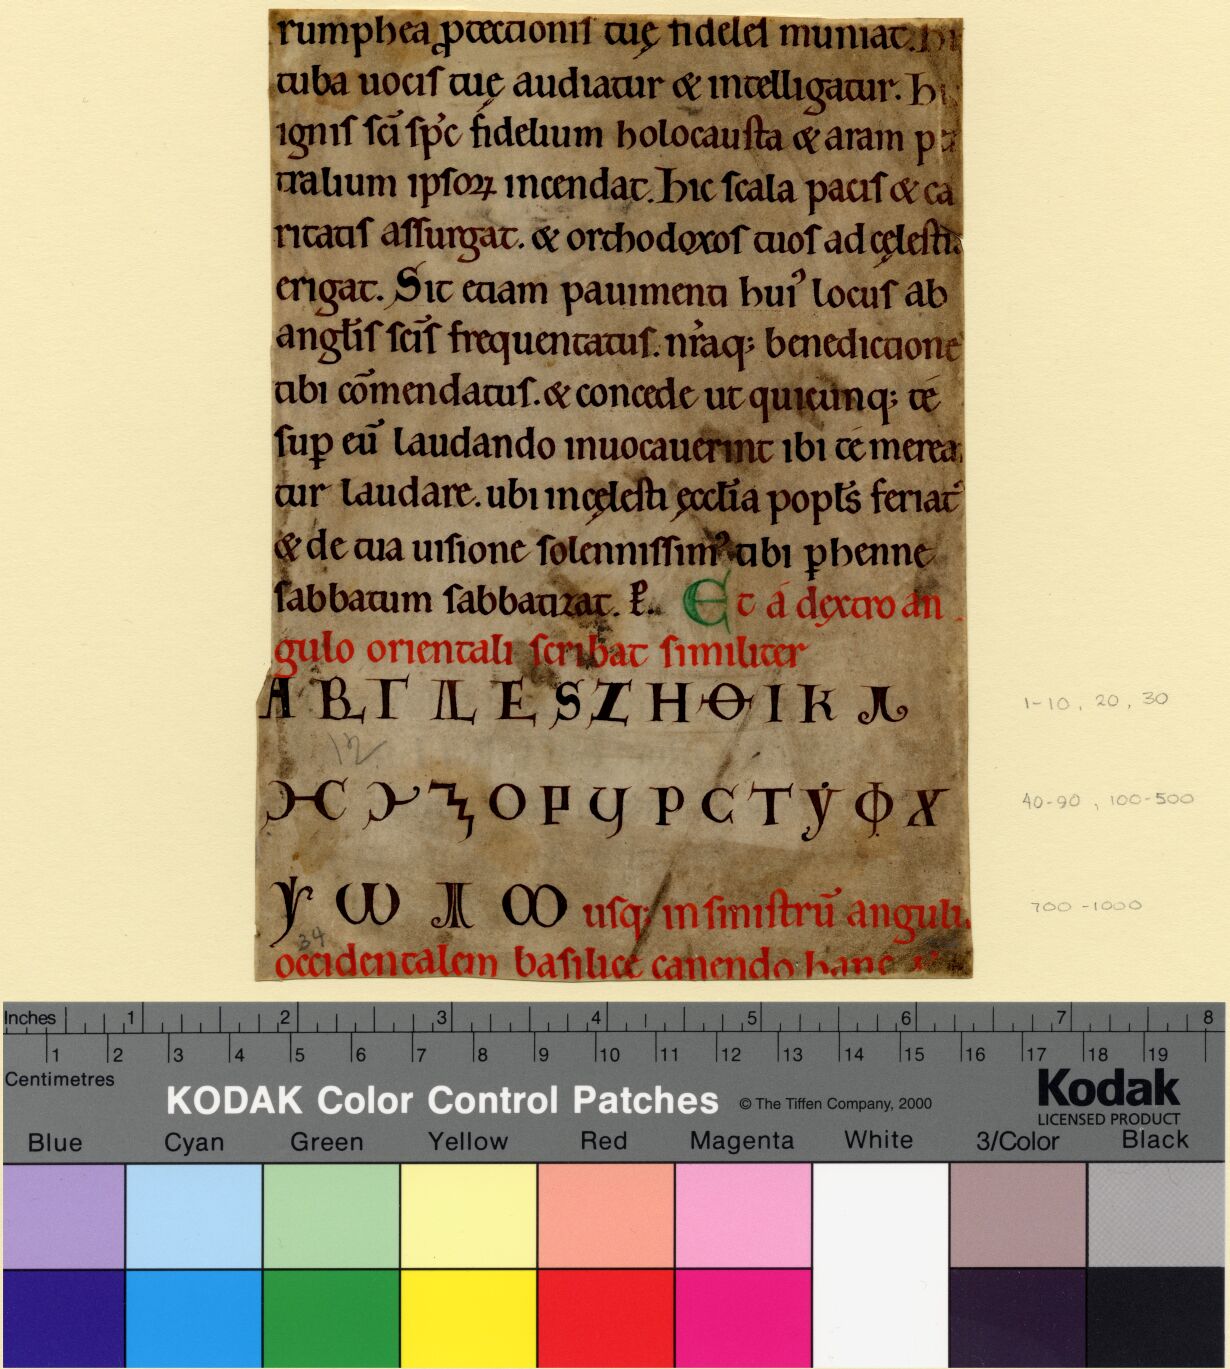 rumphea ꝓtectionis tuę fideles muniat. Hi
tuba uocis tuę audiatur & intelligatur. Hi
ignis sc̄i sp̄c fidelium holocausta & aram
tralium ipsoꝝ incendat. Hic scala pacis & ca
ritatis assurgat. & orthodoxos tuos ad cęlestia
erigat. Sic etiam pauimenti huiꝰ locus ab
angl̄is sc̄is frequentatus. nr̄aq; benedictione
tibi cōmendatus. & concede ut quicunq; té
suꝑ eū laudando inuocauerint ibi té merea
tur laudare. ubi incęlesti ęccl̄ia popl̄s feriat᷒
& de tua uisione solennissimꝰ tibi ꝑhenne
sabbatum sabbatizat. ꝑ. Et á dextro an
gulo orientali scribat similiter
Α Β Γ Δ Ε S Z Η Θ Ι Κ Λ
12
Μ Ν Ξ Ο Π Ϥ Ρ C Τ Ẏ Φ Χ
Ψ Ѡ Ϡ ꝏ usq; in sinistrū angulū
34
occidentalem basilicę canendo hanc
1-10, 20, 30
40-90, 100-500
700-1000
Inches 1 2 3 4 5 6 7 8
1 2 3 4 5 6 7 8 9 10 11 12 13 14 15 16 17 18 19
Centimetres
KODAK Color Control Patches © The Tiffen Company, 2000
Kodak
LICENSED PRODUCT
Blue Cyan Green Yellow Red Magenta White 3/Color Black